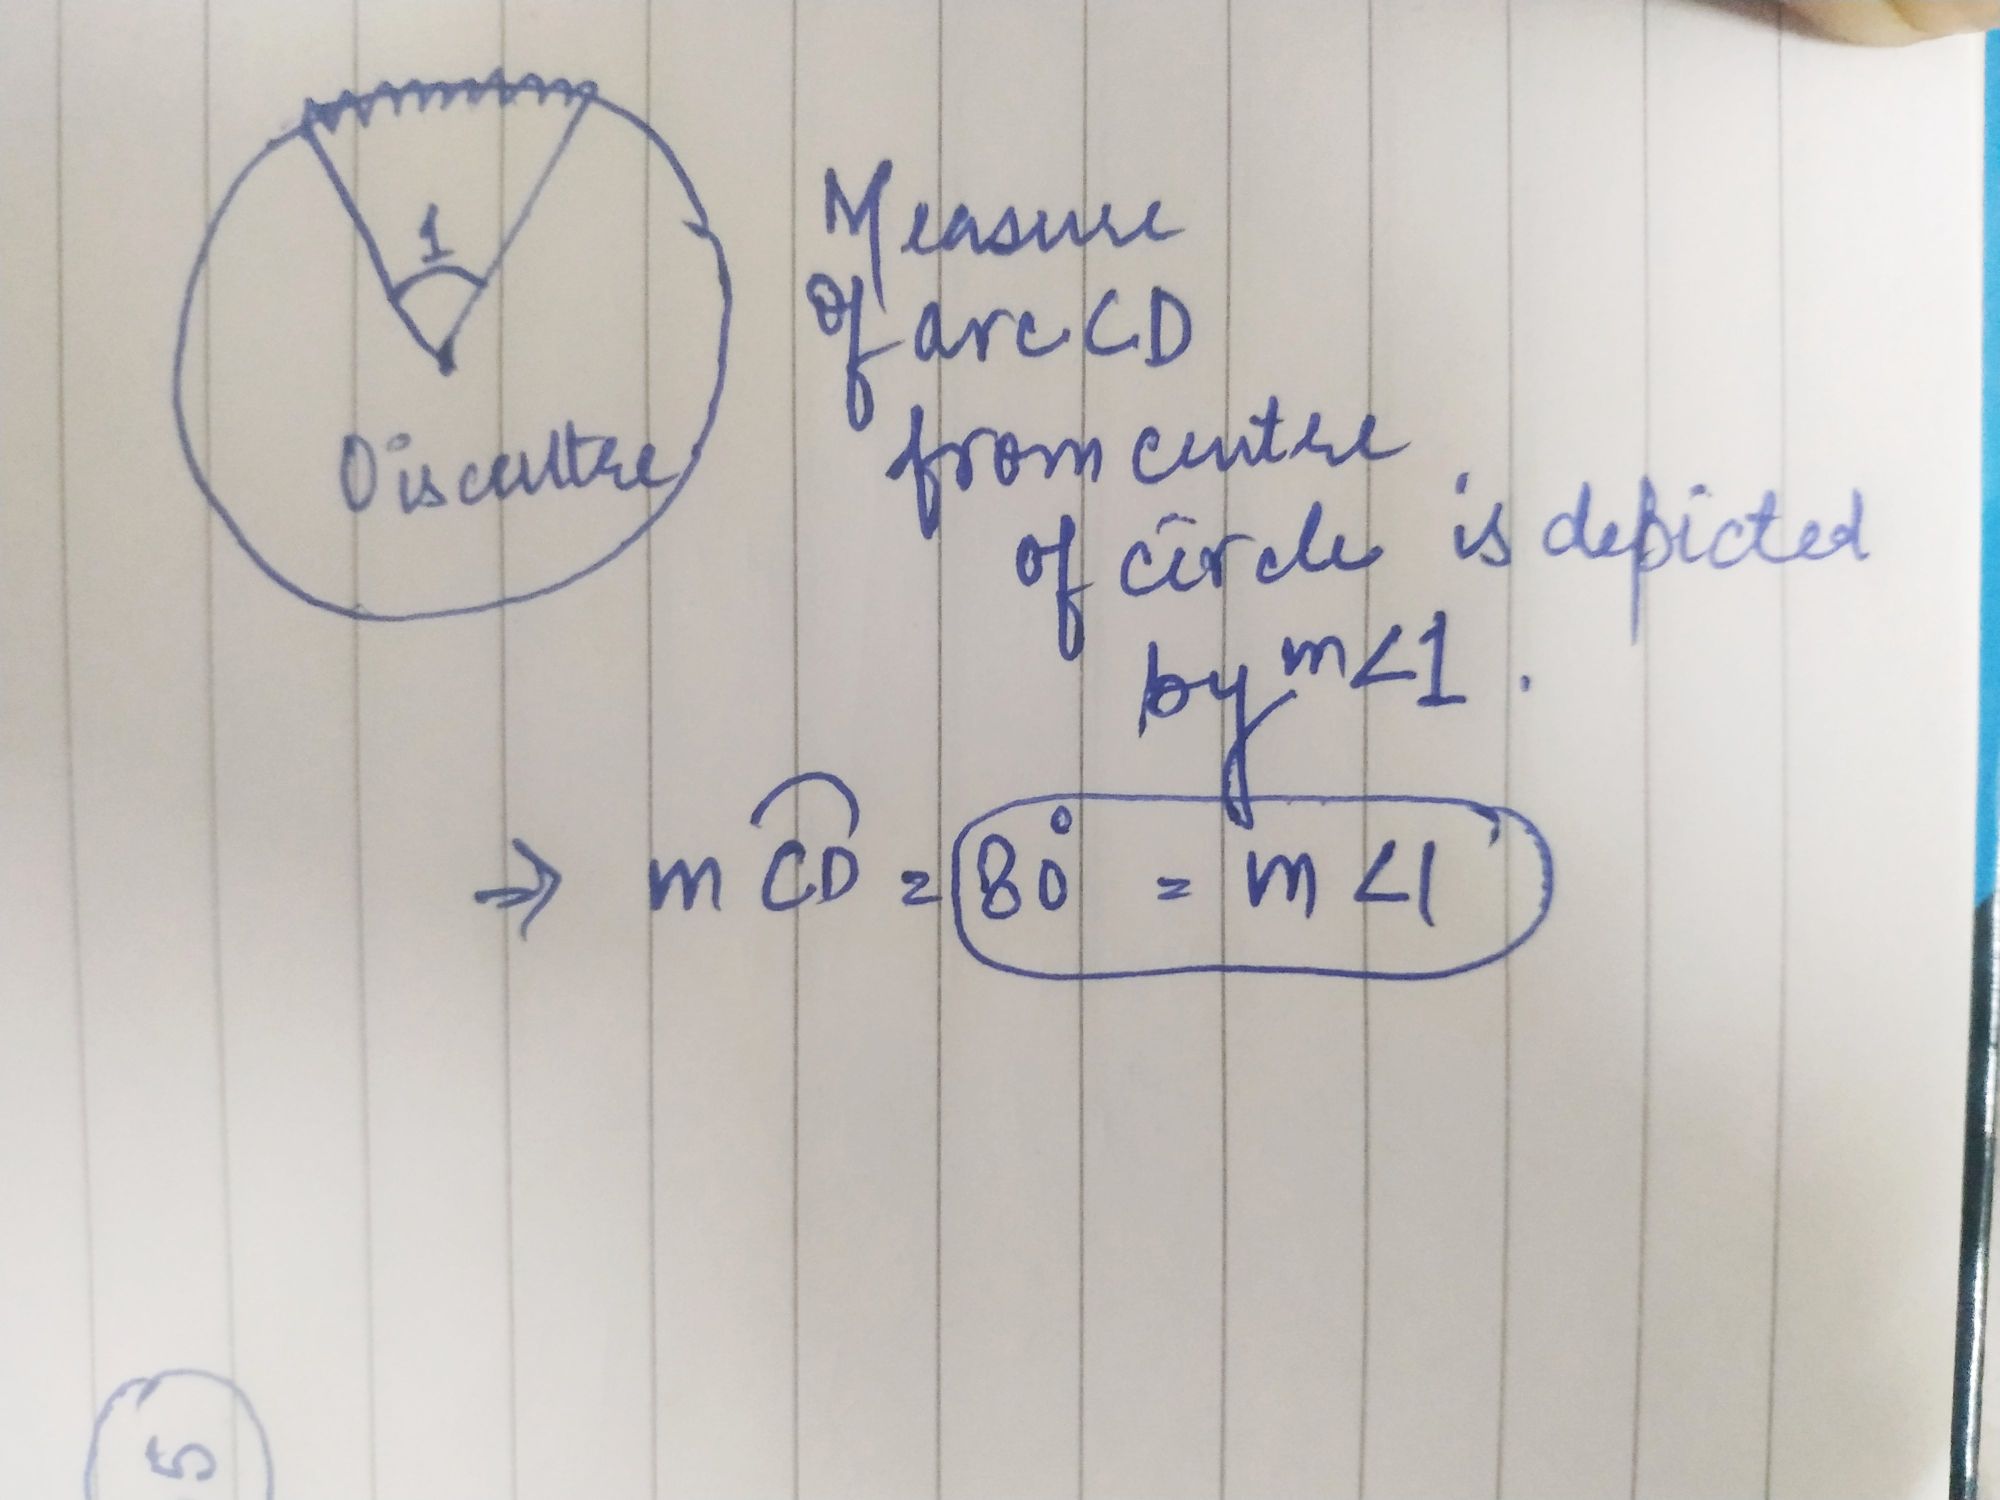 1
O is centre
Measure
of arc CD
from centre
of circle is depicted
by m∠1.
⇒ m CD = 80° = m∠1
5